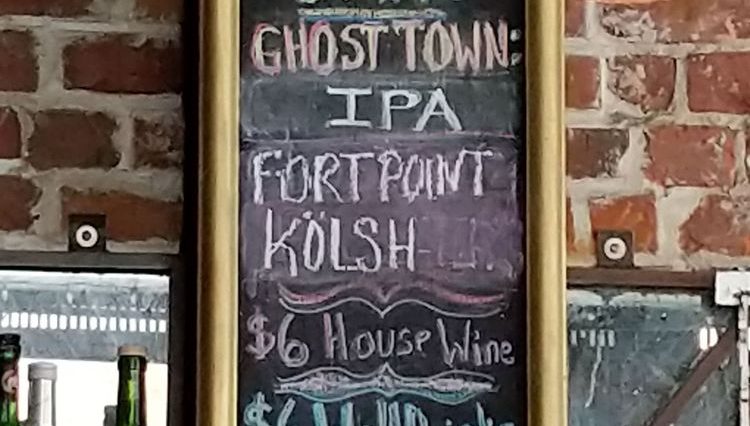 GHOST TOWN:
IPA
FORT POINT
KÖLSH
$6 House Wine
$6